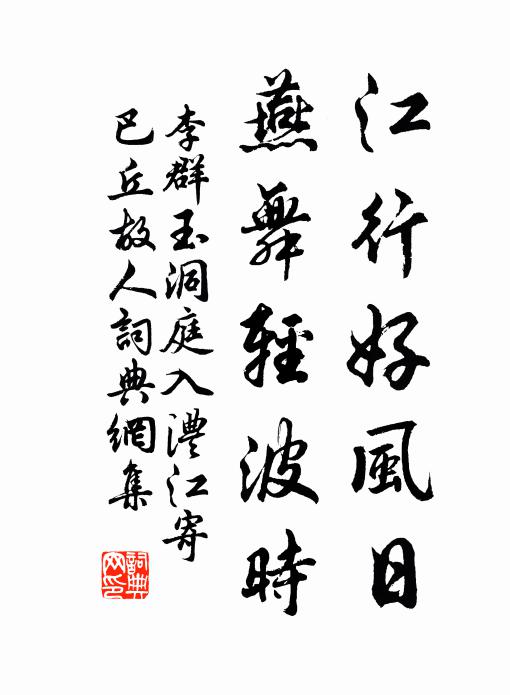 江行好風日
燕舞輕波時
李群玉洞庭入澧江寄
巴丘故人詞典網集
詞典
网印